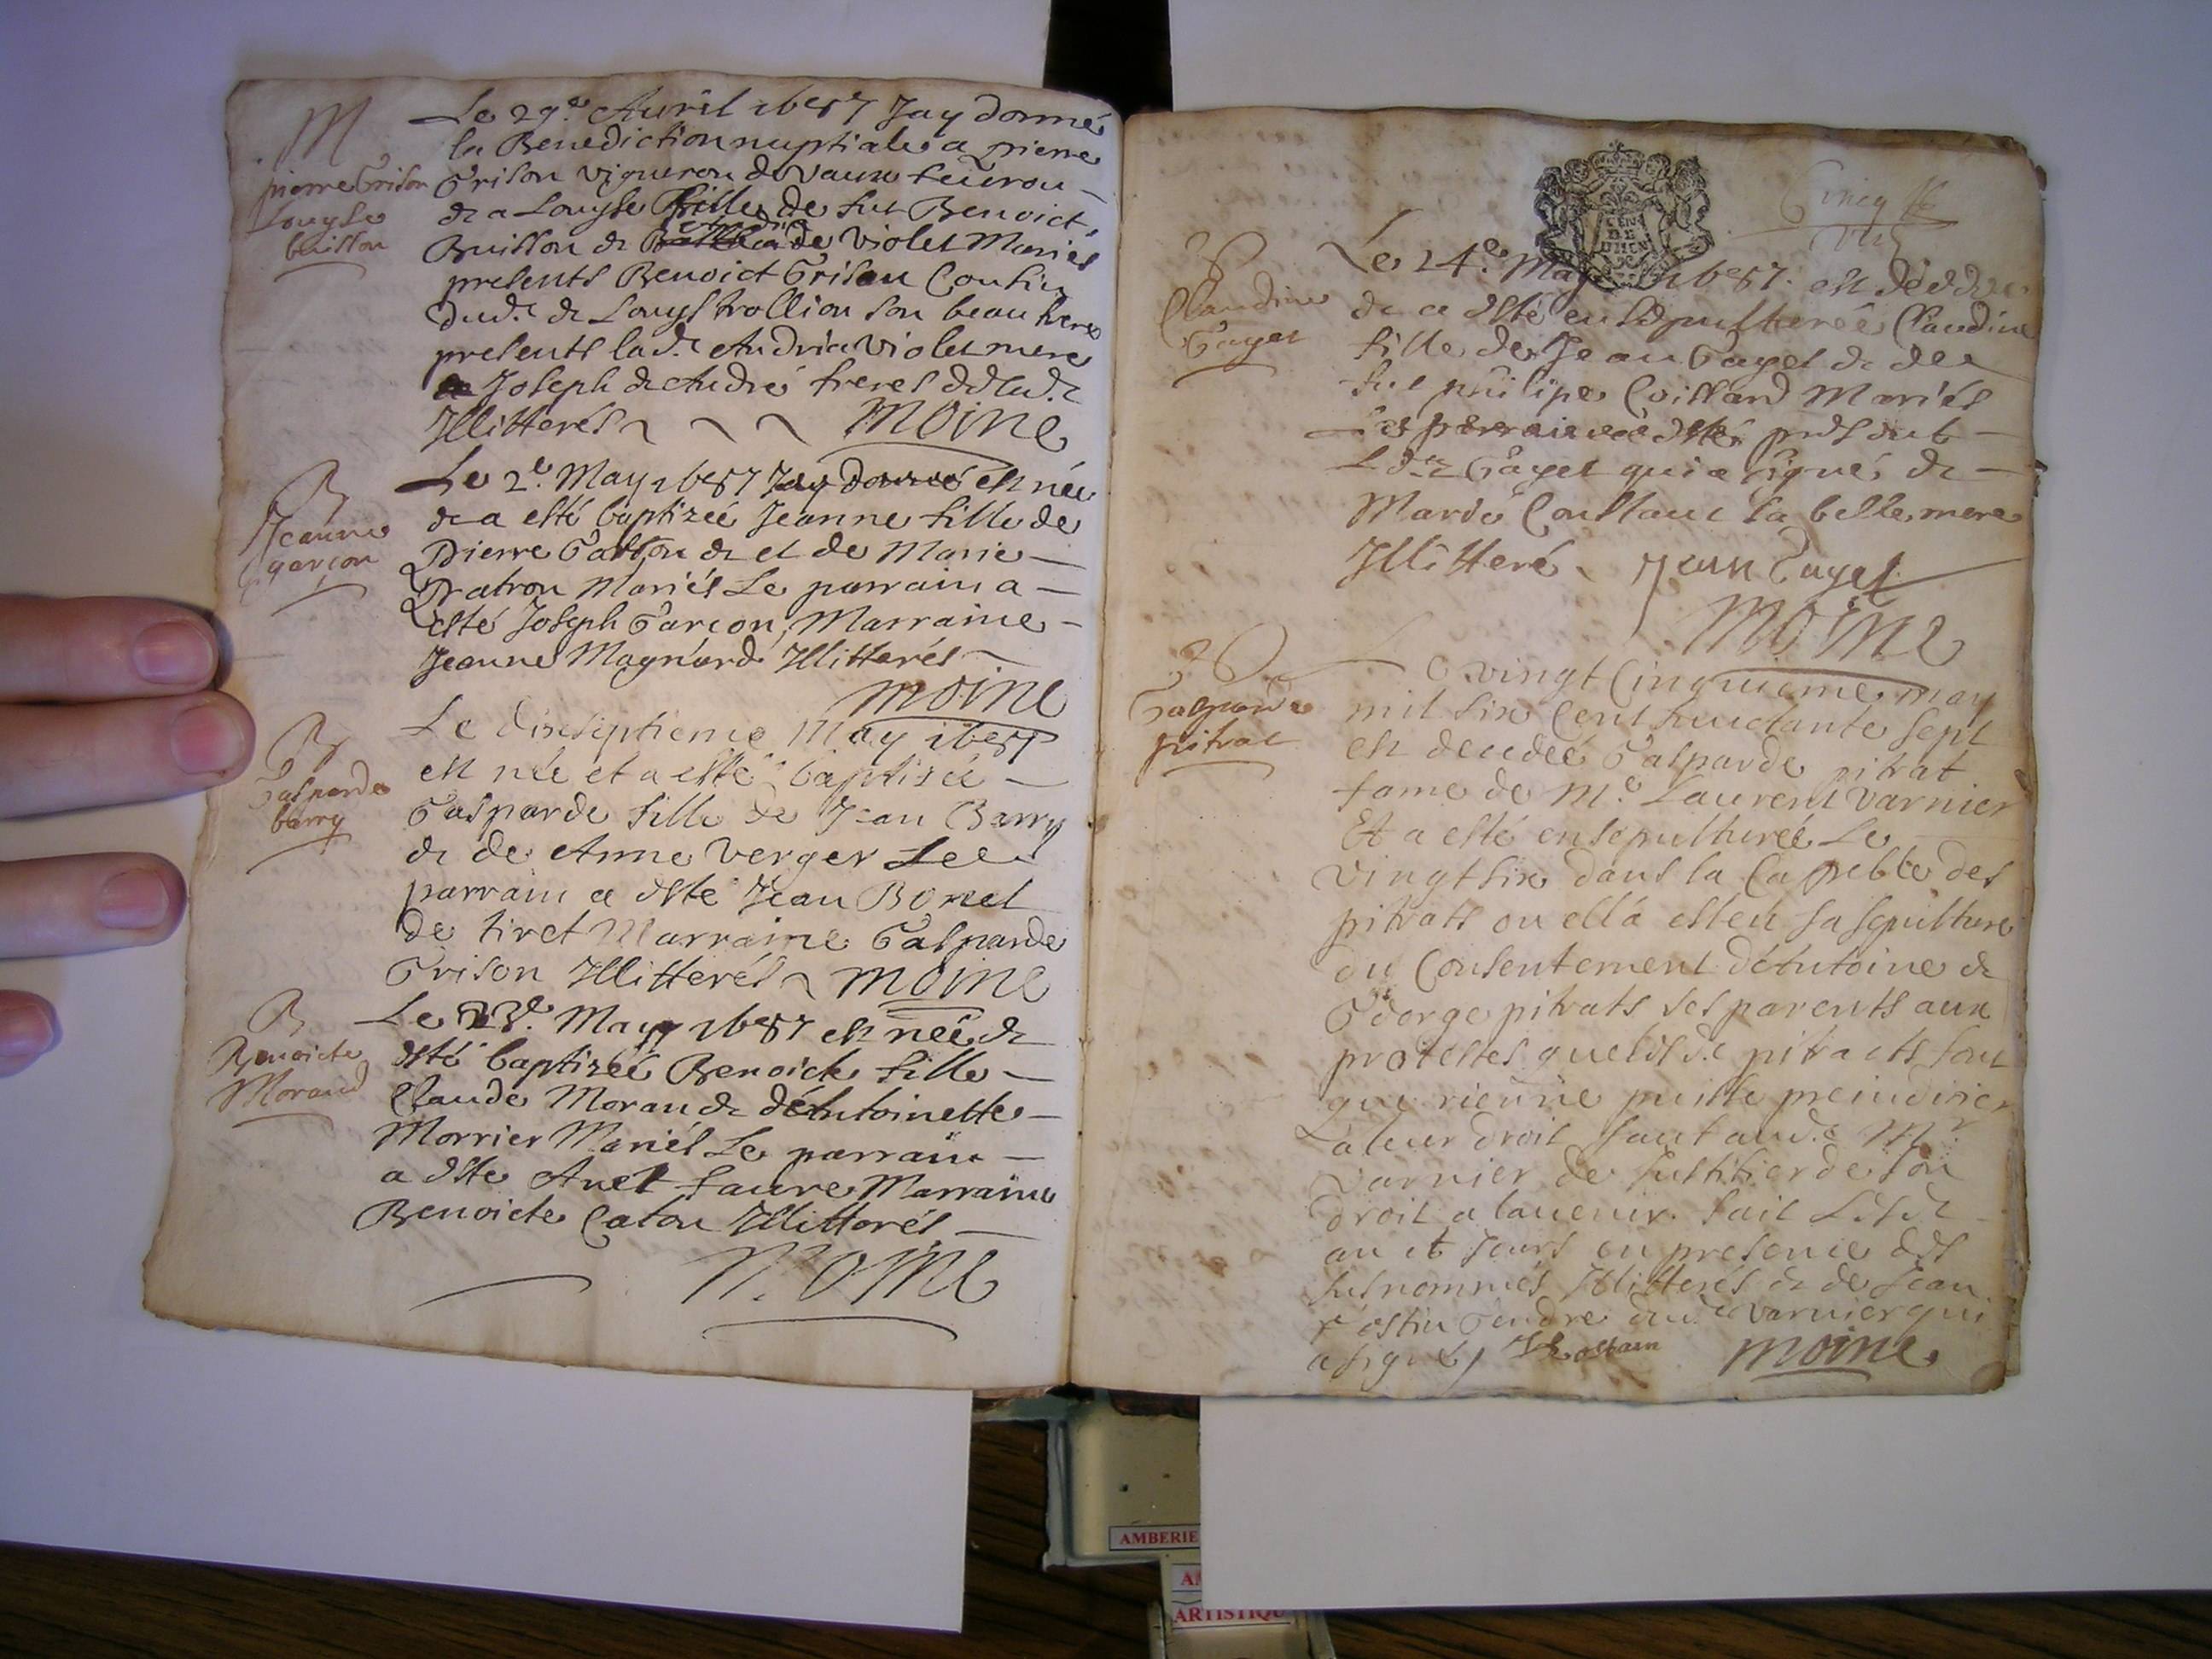 M
pierre Grison
Louyse
buisson
Le 29.e Auril 1687 Jay donné
la Benediction nuptiale a pierre
Grison vigneron de Vaux feurou
& a Louyse fille de fut Benoict
Buisson & de Violet Mariés
presents Benoict Grison Cousin
dud.t & Louys trollion son beau frere
presents lad.te Andria Violet mere
Joseph & André freres de lad.te
Illitterés moine
B
Jeanne
garçon
Le 2.e May 1687 Jay donné est née
& a esté baptizée Jeanne fille de
Pierre Garson & et de Marie
Pratron Mariés Le parrain a
esté Joseph Garcon, Marraine
Jeanne Magnard Illitterés
moine
B
Gasparde
barry
Le dixseptieme May 1687
est née et a esté baptisée
Gasparde fille de Jean Barry
& de Anne Verger Le
parrain a esté Jean Bonnel
de tiret Marraine Gasparde
Grison Illitterés moine
B
Benoicte
Moraud
Le 23.e May 1687 est née &
esté baptizée Benoicte fille
Claude Morau & d'Antoinette
Morrier Mariés Le parrain
a esté Anet faure Marraine
Benoicte Caton Illitterés
Moine
Cinq
Claudine
Gayet
Le 24.e May 1687. est décédée
& a esté ensepulturée Claudine
fille de Jean Gayet & de
fut philipe Coissard Mariés
present
Gayet qui a signé &
Marie Constant sa belle mere
Illitteré Jean Gayet
Moine
Gasparde
pitrat
Le vingt Cinquieme may
mil six Cent huictante sept
est decedée Gasparde pitrat
fame de M.e Laurent Varnier
Et a esté ensepulturée Le
vingt six dans la Chapelle des
pitrats ou ella esleu sa sepulture
du Consentement d'Antoine &
George pitrats ses parents aux
protestes que lesd.t pitrats font
que rien ne puisse preiudicier
a leur droit sauf aud.t M.r
Varnier de Justifier de son
droit a lauenir. fait
an et Jours en presence des
susnommés Illitterés & de Jean
rostin Gendre dud.t Varnier qui
a signé, J Rostain moine
AMBERIE
ARTISTIQU